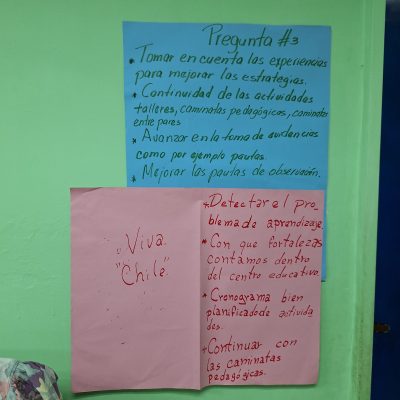 Pregunta #3
* Tomar en cuenta las experiencias
para mejorar las estrategias.
* Continuidad de las actividades
talleres, caminatas pedagógicas, caminatas
entre pares
* Avanzar en la toma de evidencias
como por ejemplo pautas.
* Mejorar las pautas de observación.
Viva
"Chile"
* Detectar el pro
blema de aprendizaje.
* Con que fortalezas
contamos dentro
del centro educativo.
* Cronograma bien
planificado de activida
des.
* Continuar con
las caminatas
pedagógicas.